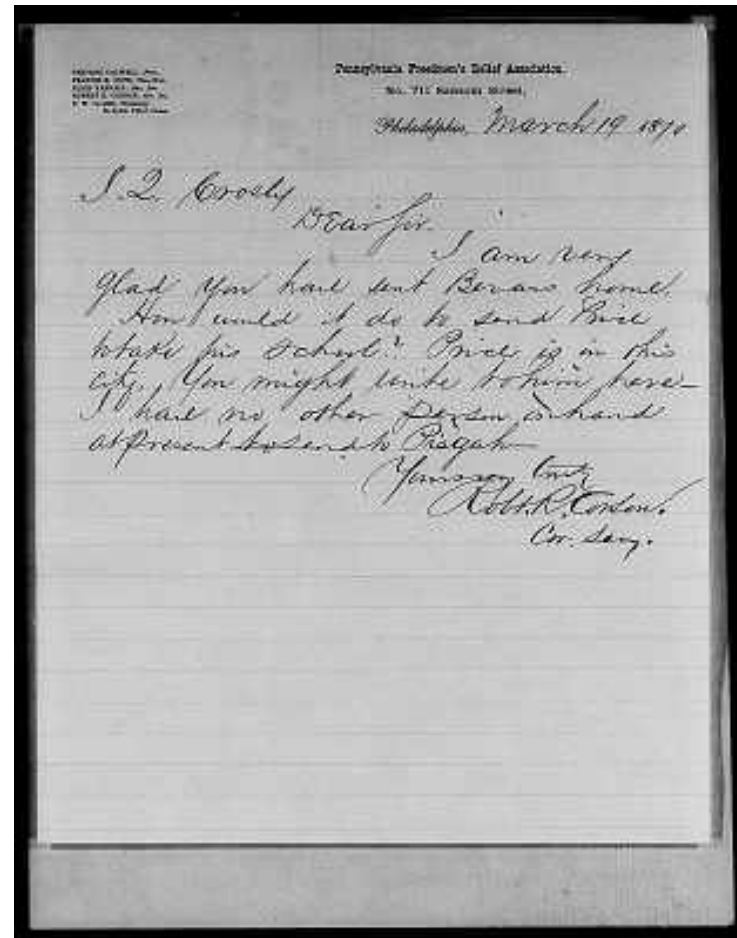 Pennsylvania Freedmen's Relief Association.
No. 711 Sansom Street,
Philadelphia, March 19 1870
J. Q. Crosby
Dear Sir.
I am very
glad you have sent Bevans home.
How would it do to send Price
to take his school? Price is in this
city. You might write to him here—
I have no other person on hand
at present to send to Pisgah—
Yours very truly
Robt. R. Corson.
Cor. Secy.